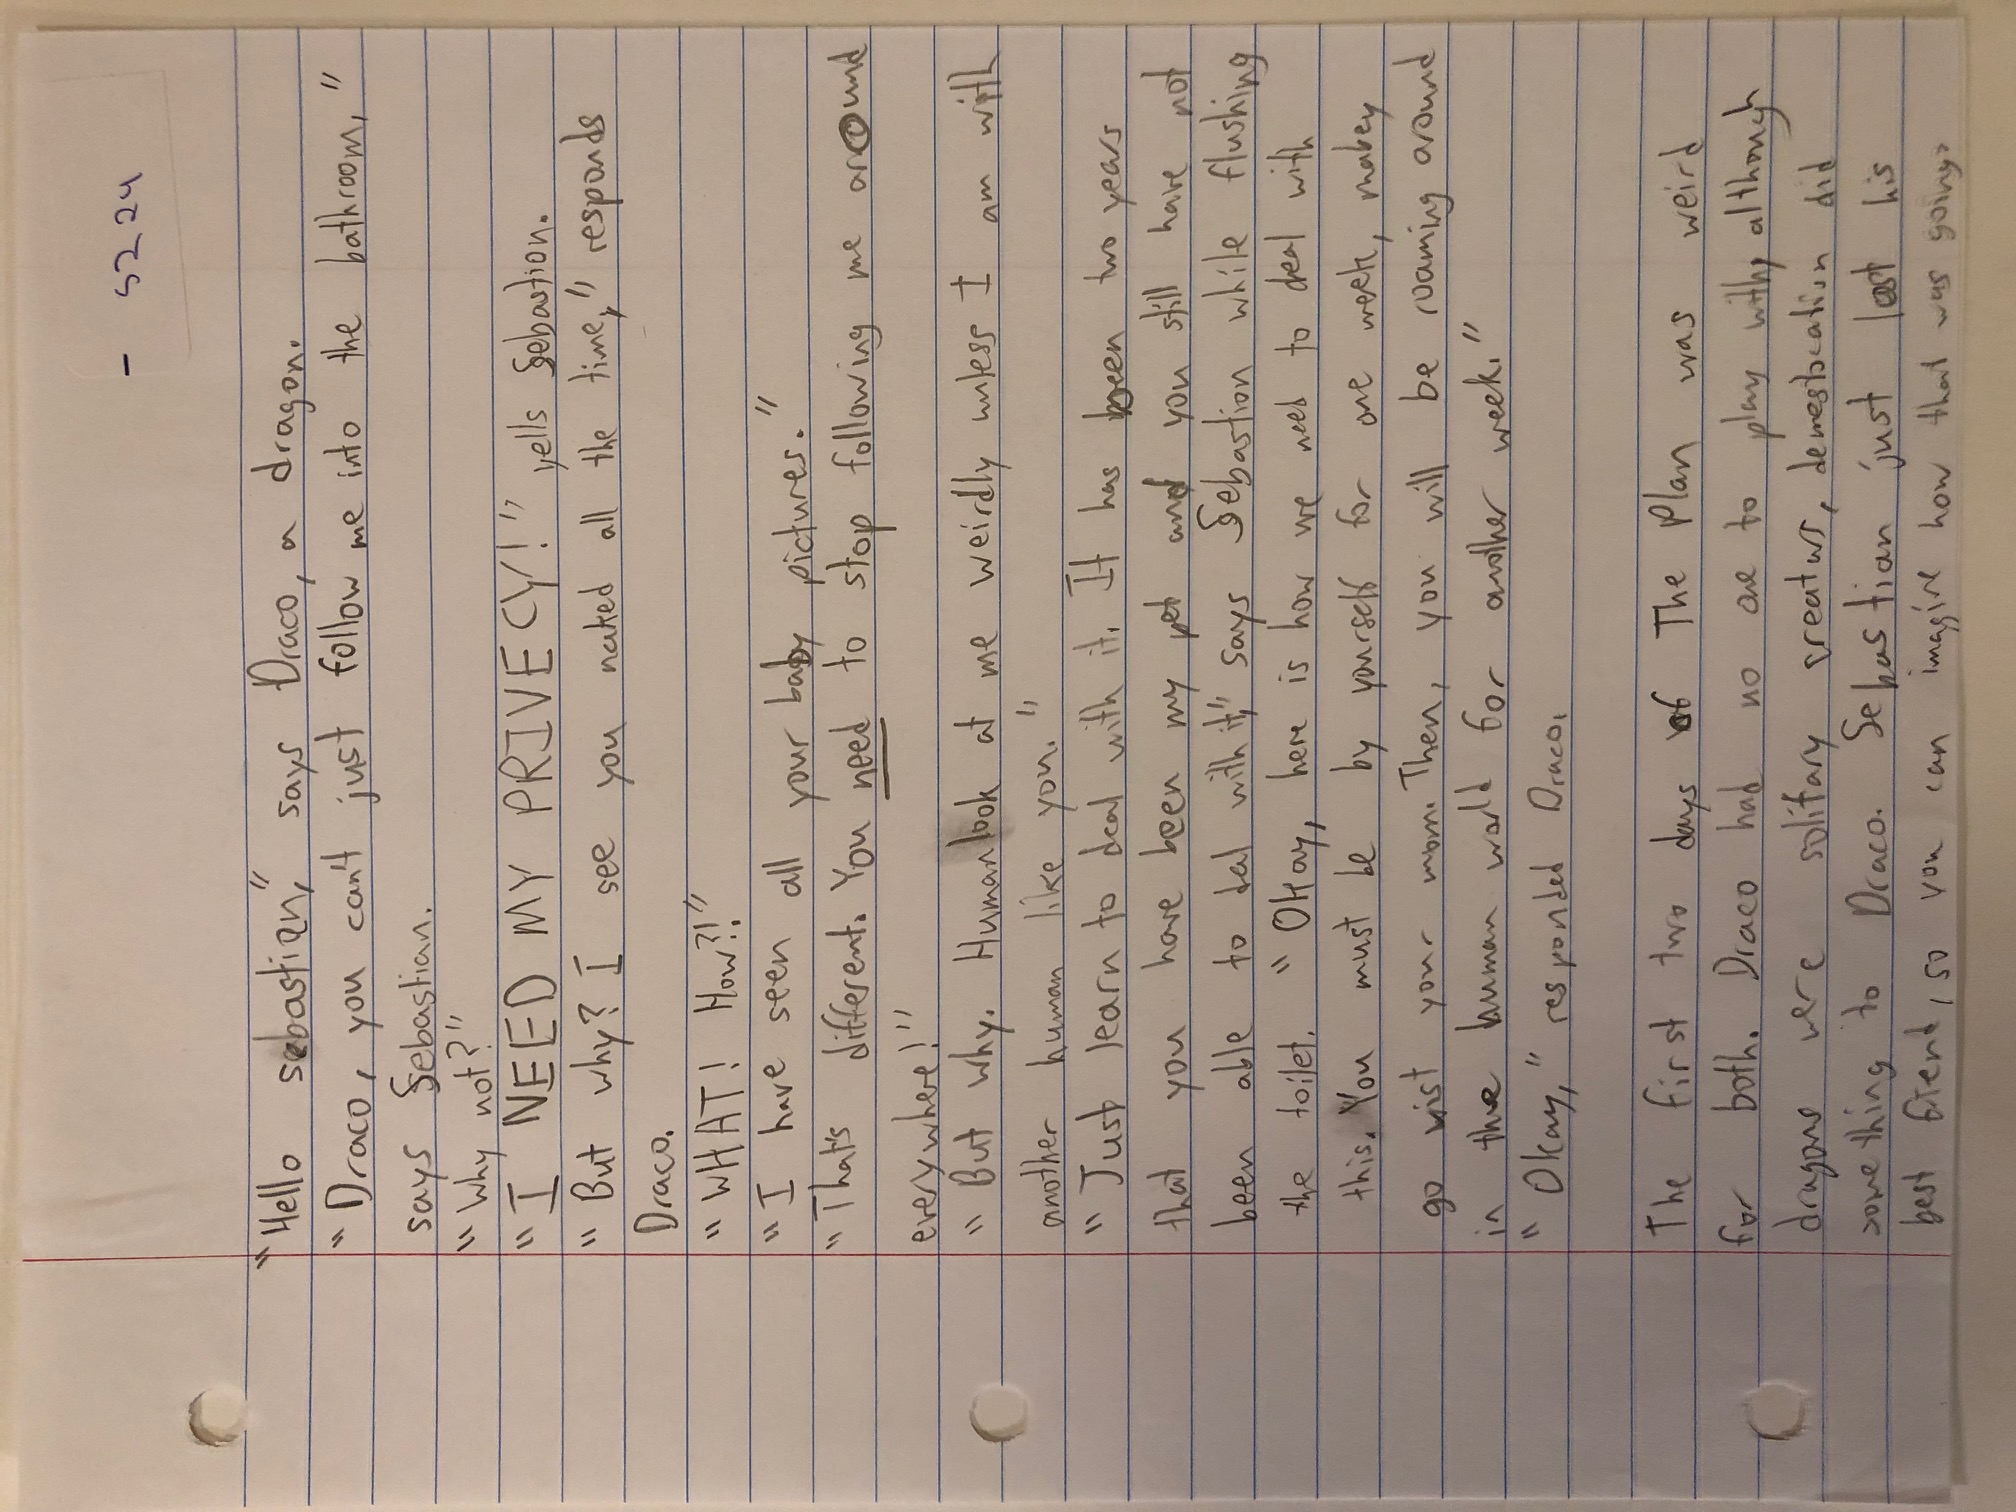 - S224
"Hello sebastian," says Draco, a dragon.
"Draco, you can't just follow me into the bathroom,"
says Sebastian.
"Why not?"
"I NEED MY PRIVECY!" yells Sebastion.
"But why? I see you naked all the time," responds
Draco.
"WHAT! How?!"
"I have seen all your baby pictures."
"That's different. You need to stop following me around
everywhere!"
"But why. Human look at me weirdly unless I am with
another human like you."
"Just learn to deal with it. It has been two years
that you have been my pet and you still have not
been able to dal with it," says Sebastion while flushing
the toilet. "Okay, here is how we need to deal with
this. You must be by yourself for one week, mabey
go vist your mom. Then, you will be roaming around
in the human world for another week."
"Okay," responded Draco.
The first two days of The Plan was weird
for both. Draco had no one to play with, although
dragons were solitary creaturs, demestocation did
something to Draco. Sebastian just lost his
best friend, so you can imagine how that was going.